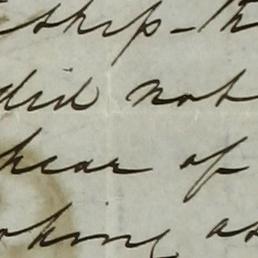 ship - th
did not
hear of
oking as